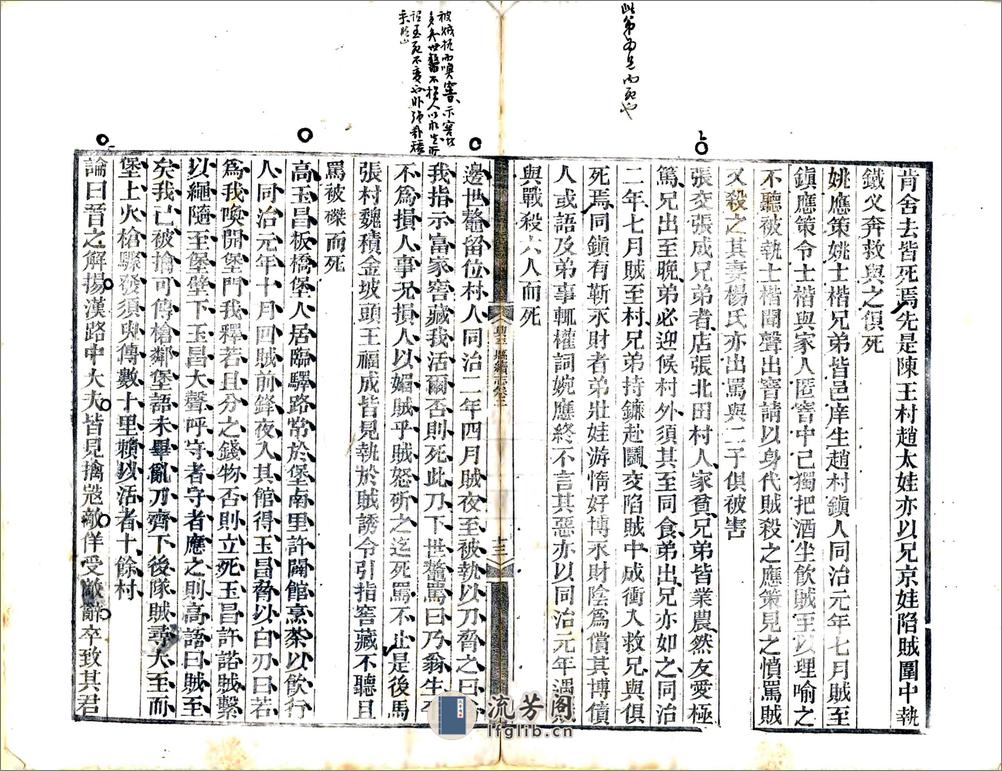 此弟為兄而死也
肯舍去皆死焉先是陳王村趙太娃亦以兄京娃陷賊圍中執
鐵乂奔救與之偕死
姚應策姚士楷兄弟皆邑庠生趙村鎮人同治元年七月賊至
鎮應策令士楷與家人匿窨中己獨把酒坐飲賊至以理喻之
不聽被執士楷聞聲出窨請以身代賊殺之應策見之憤罵賊
又殺之其妻楊氏亦出罵與二子俱被害
張交張成兄弟者店張北田村人家貧兄弟皆業農然友愛極
篤兄出至晚弟必迎候村外須其至同食弟出兄亦如之同治
二年七月賊至村兄弟持鐮赴鬭交陷賊中成衝入救兄與俱
死焉同鎮有靳永財者弟壯娃游惰好博永財陰為償其博債
人或語及弟事輒權詞婉應終不言其惡亦以同治元年遇
與戰殺六人而死
邊世鼇留位村人同治二年四月賊夜至被執以刀脅之曰
我指示富家窖藏我活爾否則死此刀下世鼇罵曰乃翁生平
不為損人事況損人以媚賊乎賊怒斫之迄死罵不止是後馬
張村魏積金坡頭王福成皆見執於賊誘令引指窖藏不聽且
罵被磔而死
高玉昌板橋堡人居臨驛路常於堡南里許開館烹茶以飲行
人同治元年十月四賊前鋒夜入其館得玉昌脅以白刃曰若
為我喚開堡門我釋若且分之錢物否則立死玉昌許諾賊繫
以繩隨至堡壁下玉昌大聲呼守者守者應之則高語曰賊至
矣我已被擒可傳槍鄰堡語未畢亂刀齊下後隊賊尋大至而
堡上火槍驟發須臾傳數十里賴以活者十餘村
論曰晉之解揚漢路中大夫皆見擒寇敵佯受敵辭卒致其君
十三
流芳阁
lfglib.cn